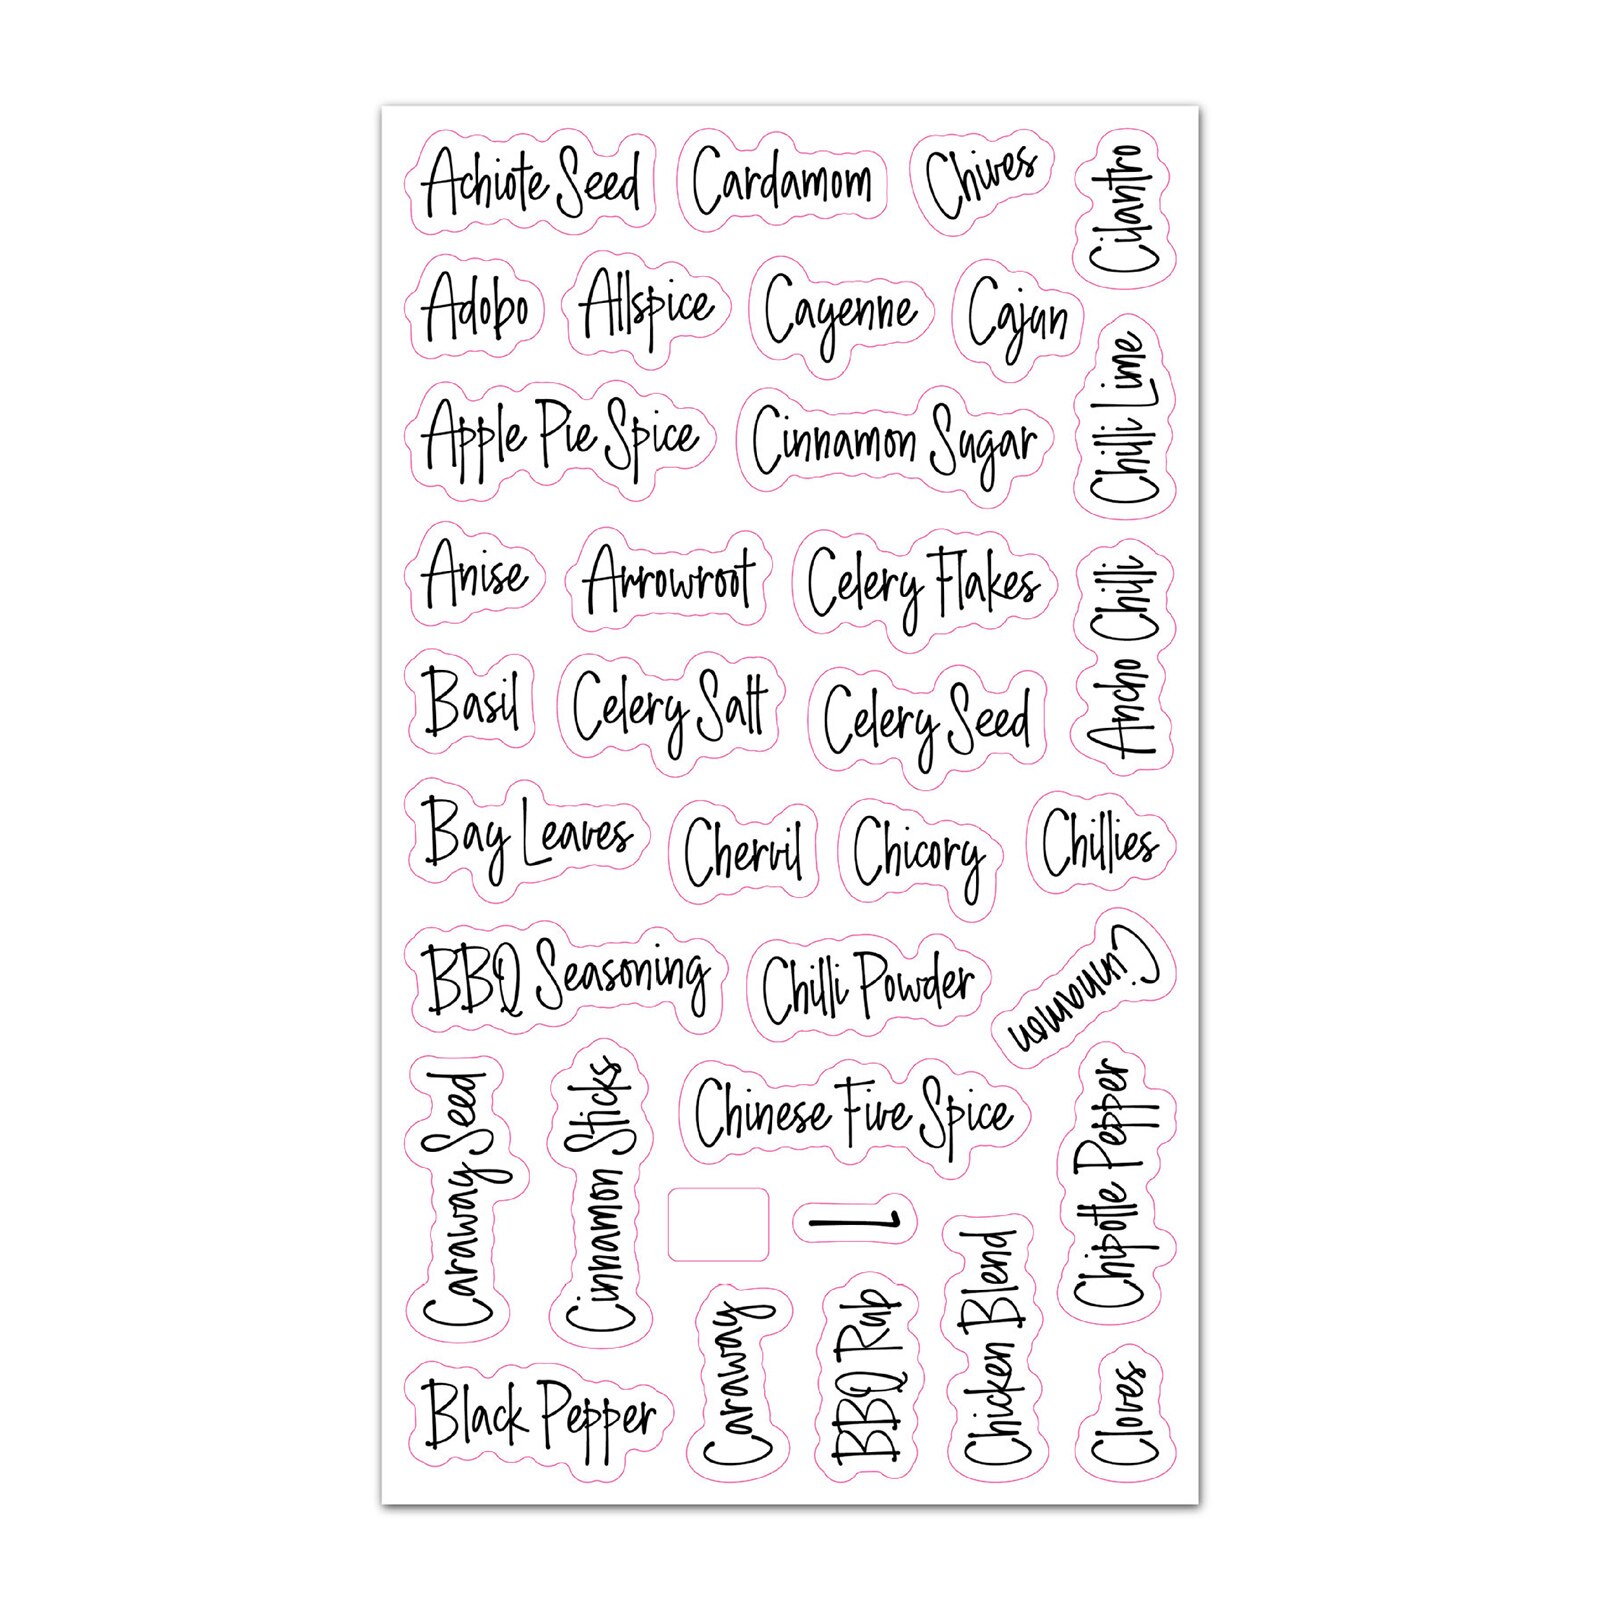 Achiote Seed
Cardamom
Chives
Cilantro
Adobo
Allspice
Cayenne
Cajun
Chilli Lime
Apple Pie Spice
Cinnamon Sugar
Anise
Arrowroot
Celery Flakes
Ancho Chilli
Basil
Celery Salt
Celery Seed
Bay Leaves
Chervil
Chicory
Chillies
BBQ Seasoning
Chilli Powder
Cinnamon
Caraway Seed
Cinnamon Sticks
Chinese Five Spice
Chipotle Pepper
1
Black Pepper
Caraway
BBQ Rub
Chicken Blend
Cloves